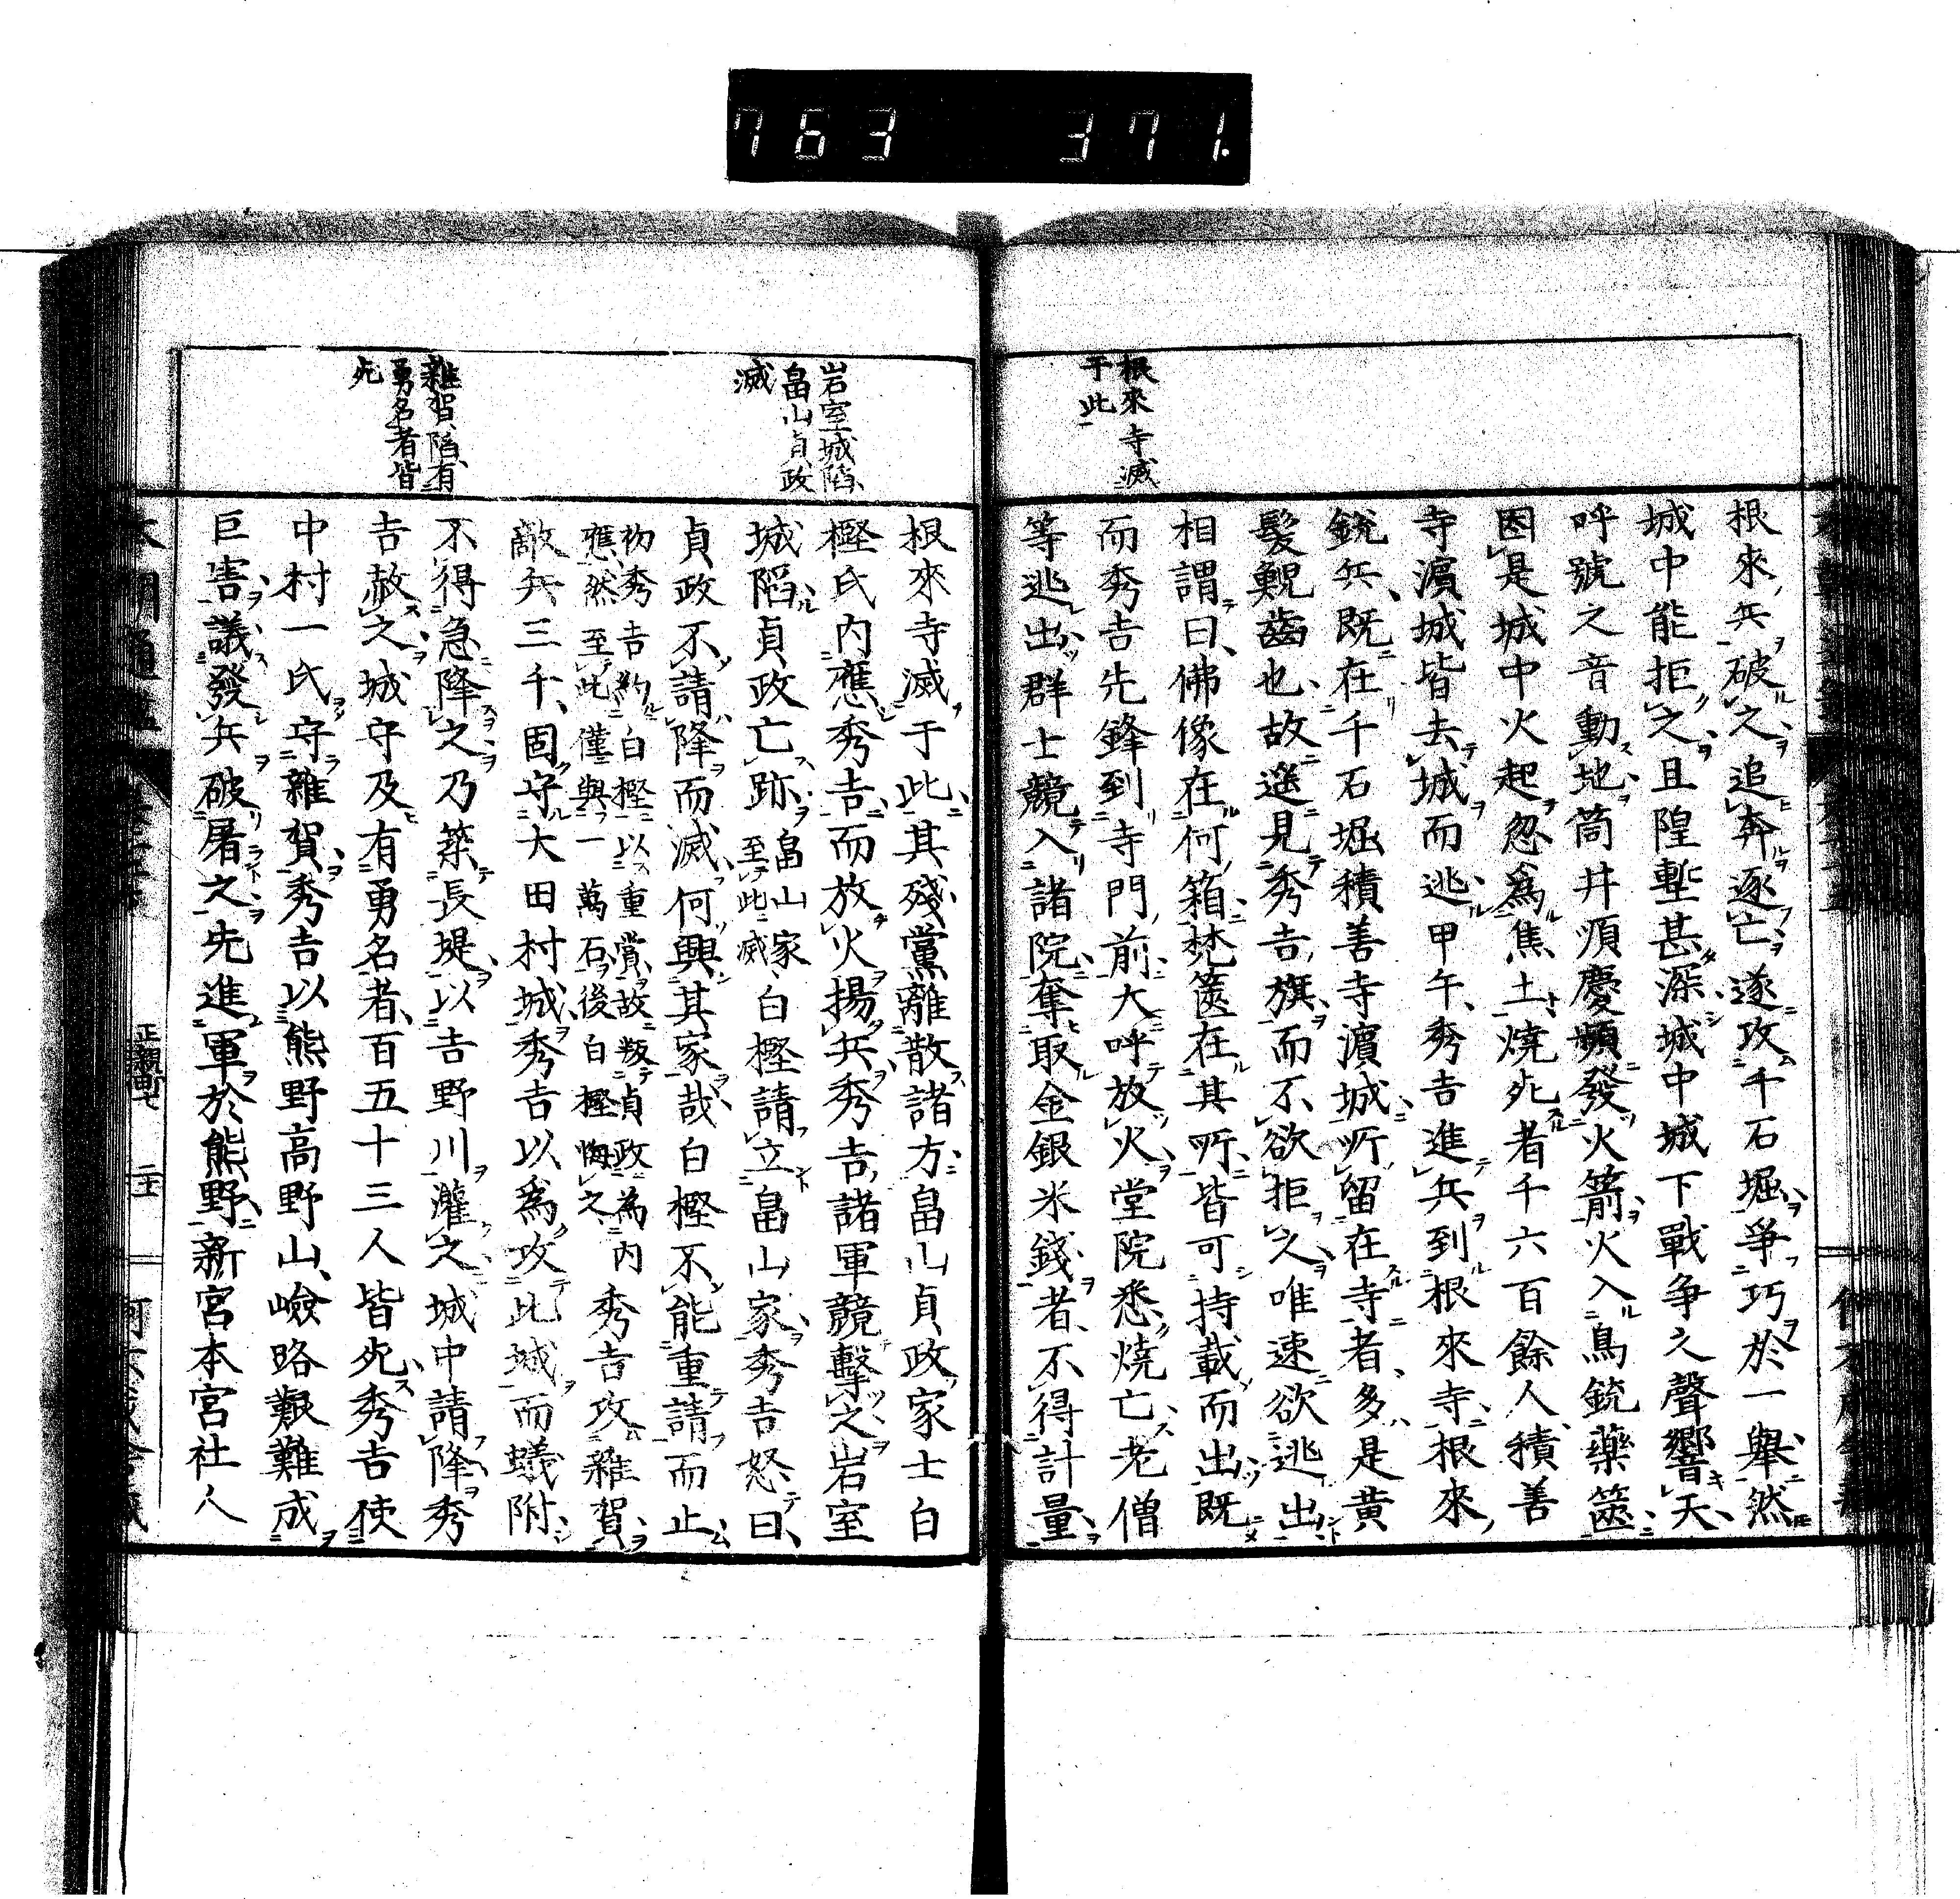 763 371.
根來寺滅
于此
根來兵破之追奔逐亡遂攻千石堀爭巧於一舉然
城中能拒之且隍塹甚深城中城下戰爭之聲響天
呼號之音動地筒井順慶頻發火箭火入鳥銃藥篋
因是城中火起忽爲焦土燒死者千六百餘人積善
寺濵城皆去城而逃甲午秀吉進兵到根來寺根來
銃兵既在千石堀積善寺濵城所留在寺者多是黄
髪鯢齒也故遥見秀吉旗而不欲拒之唯速欲逃出
相謂曰佛像在何箱梵篋在其所皆可持載而出既
而秀吉先鋒到寺門前大呼放火堂院悉燒亡老僧
等逃出群士競入諸院奪取金銀米錢者不得計量
岩室城陷
畠山貞政
滅
雜賀陷有
勇名者皆
死
根來寺滅于此其殘黨離散諸方畠山貞政家士白
樫氏内應秀吉而放火揚兵秀吉諸軍競擊之岩室
城陷貞政亡跡畠山家至此滅白樫請立畠山家秀吉怒曰
貞政不請降而滅何興其家哉白樫不能重請而止
初秀吉約白樫以重賞故叛貞政為内
應然至此僅與一萬石後白樫悔之秀吉攻雜賀
敵兵三千固守大田村城秀吉以為攻此城而蟻附
不得急降之乃築長堤以吉野川灌之城中請降秀
吉赦之城守及有勇名者百五十三人皆死秀吉使
中村一氏守雜賀秀吉以熊野高野山嶮路艱難成
巨害議發兵破屠之先進軍於熊野新宮本宮社人
正親町七 二十